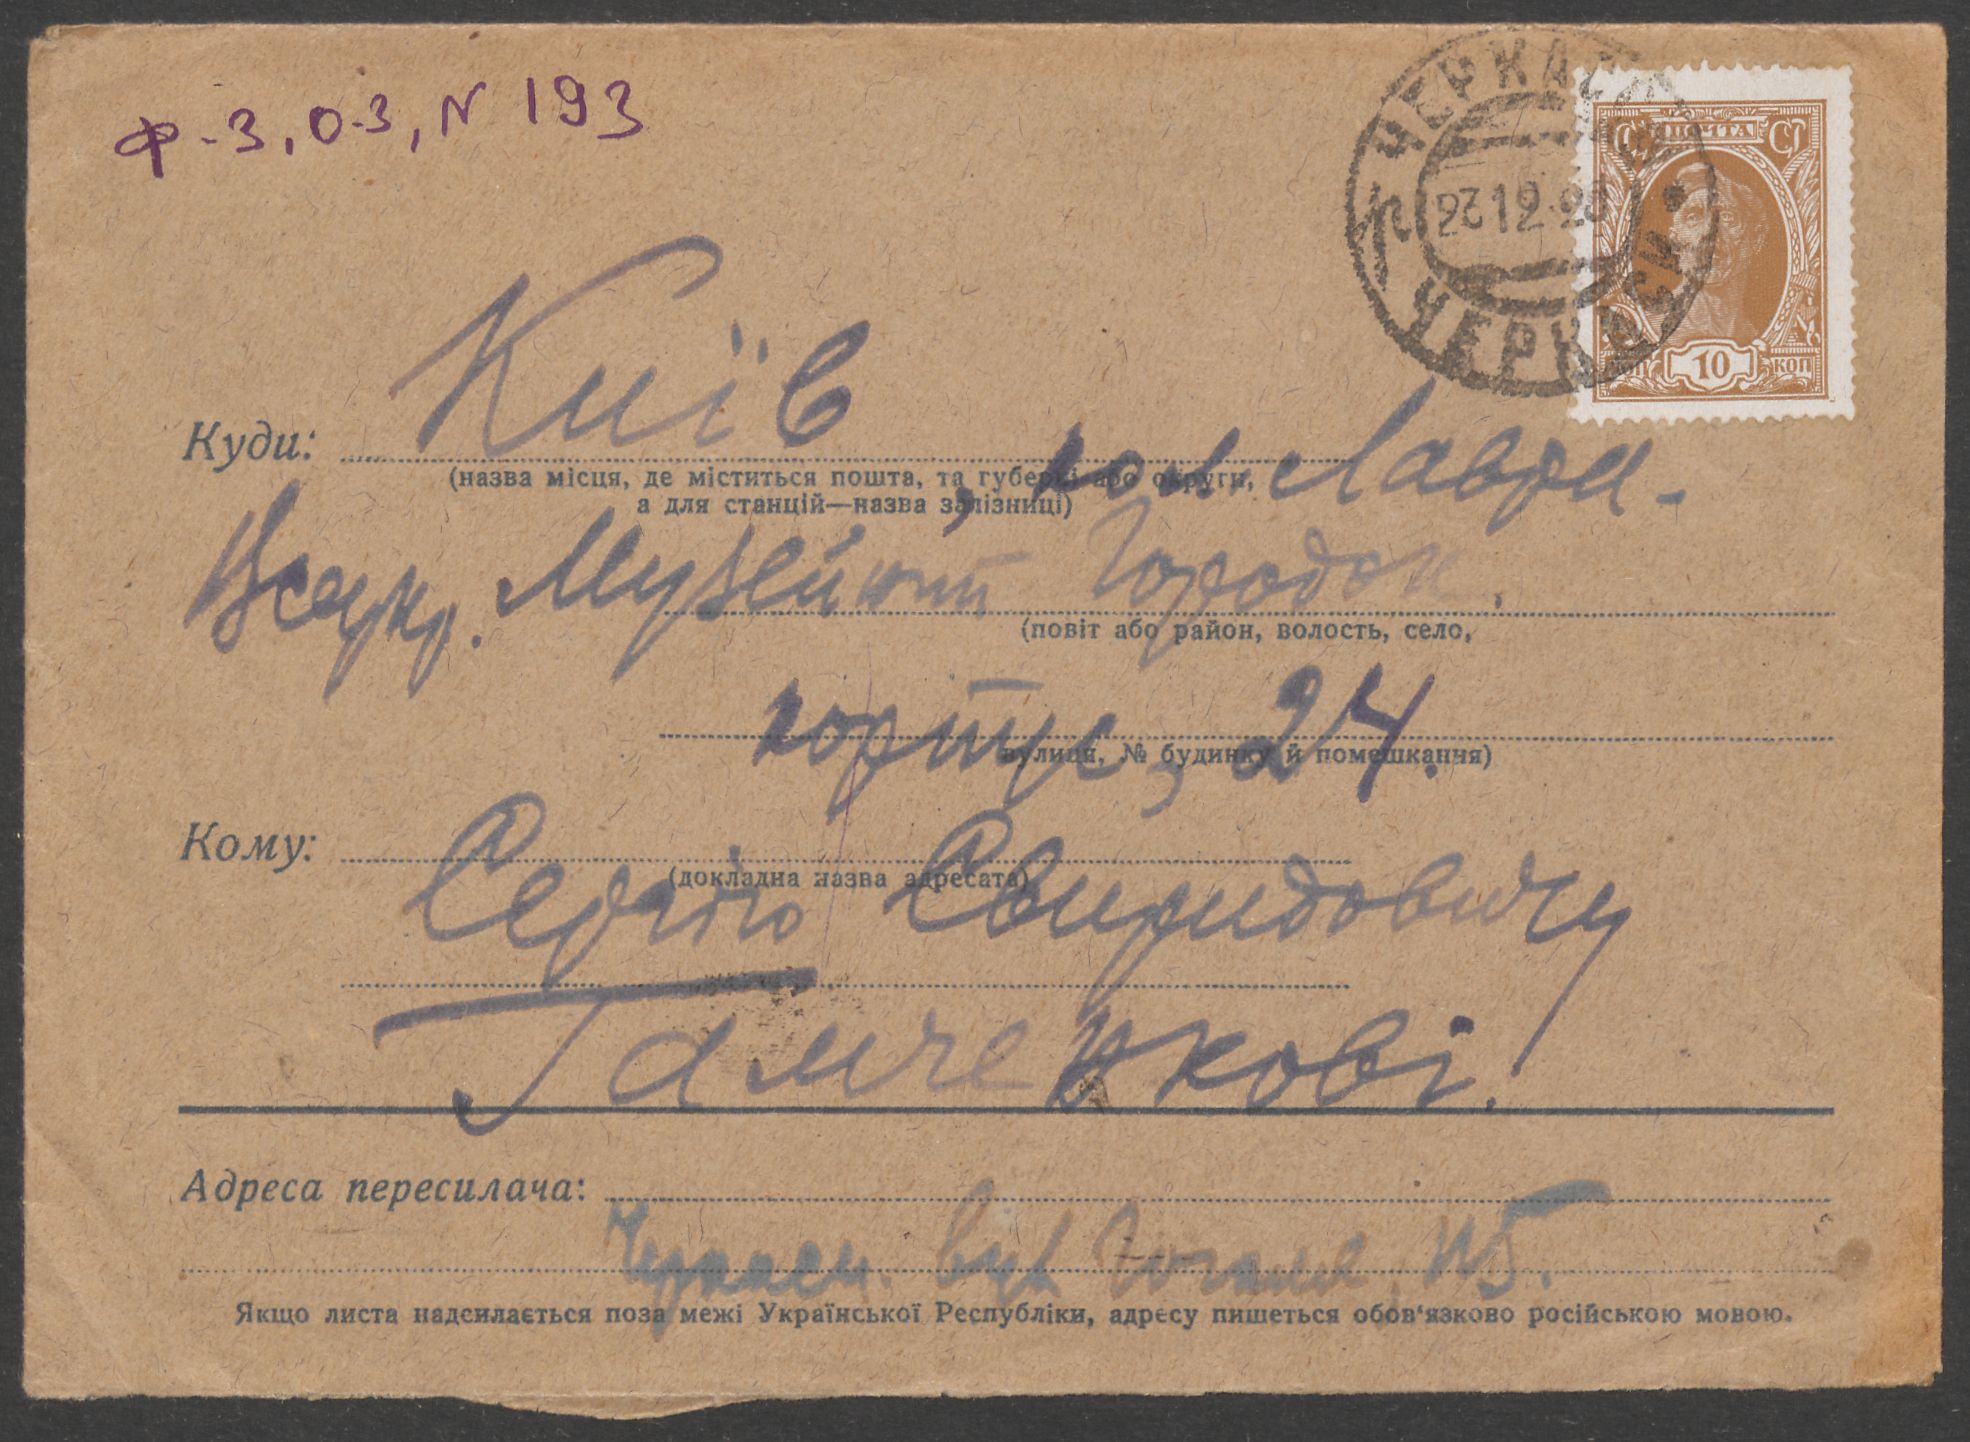 Ф-3, О-3, N 193
ЧЕРКАСИ
ПОЧТА
ЧЕРКАСИ
10
КОП КОП
Київ
Куди:
(назва місця, де міститься пошта, та губерні або округи,
, кол Лаври.
а для станцій—назва залізниці)
Всеукр. Музейний Городок.
(повіт або район, волость, село,
корпус, 24.
вулиця, № будинку й помешкання)
Кому:
(докладна назва адресата)
Сергію Свиридовичу
Гамченкові.
Адреса пересилача:
Черкаси. вул Гоголя,
Якщо листа надсилається поза межі Української Республіки, адресу пишеться обов'язково російською мовою.